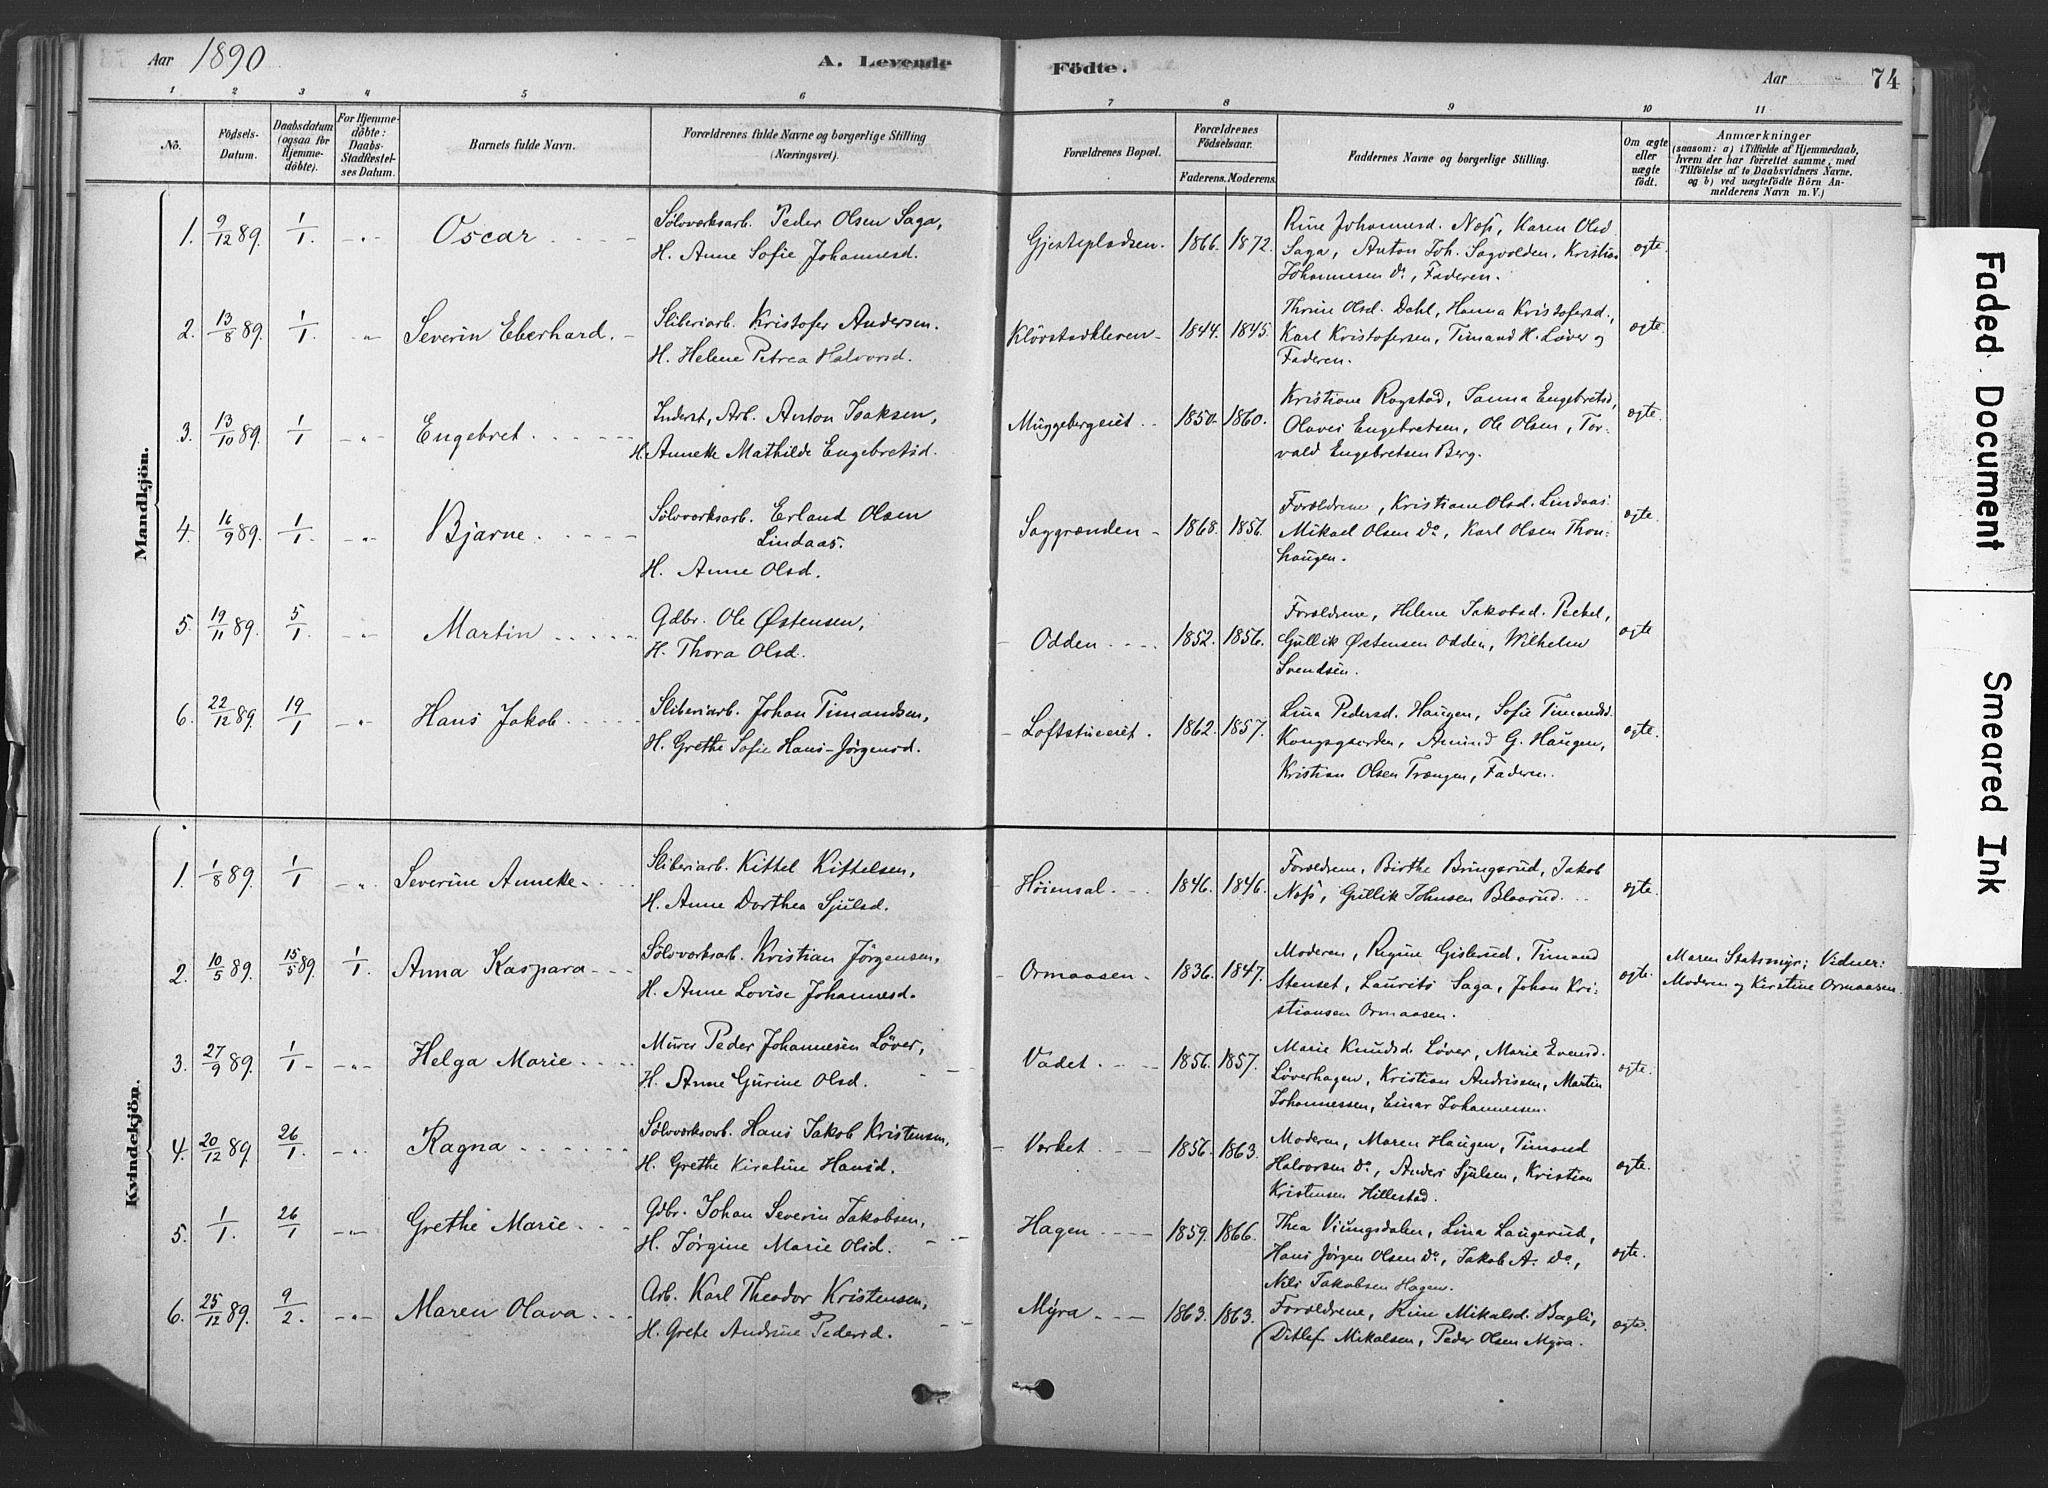 Aar 1890 A. Levende Födte. Aar 74
1 2 3 4 5 6 7 8 9 10 11
No.
Födsels-Datum.
Daabsdatum (ogsaa for Hjemme-döbte).
For Hjemme-döbte: Daabs-Stadfæstel-ses Datum.
Barnets fulde Navn.
Forældrenes fulde Navne og borgerlige Stilling (Næringsvei).
Forældrenes Bopæl.
Forældrenes Födselsaar.
Faderens. Moderens.
Faddernes Navne og borgerlige Stilling.
Om ægte eller uægte födt.
Anmærkninger
(saasom: a) i Tilfælde af Hjemmedaab,
hvem der har forrettet samme, med
Tilföielse af to Daabsvidners Navne,
og b) ved uægtefödte Börn An-
melderens Navn m. V.)
Mandkjön.
1. 9/12 89. 1/1 -"- Oscar
Sølvværksarb. Peder Olsen Saga,
H. Anne Sofie Johannesd.
Gjestepladsen. 1866. 1872.
Rine Johannesd. Næss, Karen Olsd
Saga, Anton Joh. Sagvolden, Kristian
Johannesen Do, Faderen.
ægte.
2. 13/8 89. 1/1 -"- Severin Eberhard.
Sliberiarb. Kristofer Andersen.
H. Helene Petrea Halvorsd.
Klövstadkleven 1844. 1845.
Thrine Olsd. Dahl, Hanna Kristofersd.,
Karl Kristofersen, Timand H. Løver og
Faderen.
ægte.
3. 13/10 89. 1/1 -"- Engebret.
Inderst, Arb. Anton Isaksen,
H. Anneke Mathilde Engebretsd.
Muggebergeiet 1850. 1860.
Kristiane Rogstad, Janna Engebretsd,
Olaves Engebretsen, Ole Olsen, Tor-
vald Engebretsen Berg.
ægte.
4. 16/9 89. 1/1 -"- Bjarne.
Sølvværksarb. Erland Olsen
Lindaas.
H. Anne Olsd.
Saggrænden 1868. 1856.
Forældrene, Kristiane Olsd. Lindaas.
Mikael Olsen Do, Karl Olsen Thon-
haugen.
ægte.
5. 19/11 89. 5/1 -"- Martin
Gdbr. Ole Østensen,
H. Thora Olsd.
Odden 1852. 1856.
Forældrene, Helene Jakobsd. Peckel,
Gullik Østensen Odden, Wilhelm
Svendsen.
ægte
6. 22/12 89. 19/1 -"- Hans Jakob.
Sliberiarb. Johan Timandsen,
H. Grethe Sofie Hans-Jørgensd.
Loftstueeiet. 1862. 1857.
Lina Pedersd. Haugen, Sofie Timandsd.
Kongsgaarden, Amund G. Haugen,
Kristian Olsen Trangen, Faderen.
ægte.
Kvindekjön.
1. 1/8 89. 1/1 -"- Severine Anneke.
Sliberiarb. Kittel Kittelsen,
H. Anne Dorthea Sjulsd.
Høiensal. 1846. 1846.
Forældrene, Birthe Bringsrud, Jakob
Næss, Gullik Johnsen Blaarud.
ægte.
2. 10/5 89. 15/5 89. 1/1. Anna Kaspara
Sølvværksarb. Kristian Jörgensen,
H. Anne Lovise Johannesd.
Ormaasen 1836. 1847.
Moderen, Regine Gislerud, Timand
Stenset, Laurits Saga, Johan Kri-
stiansen Ormaasen.
ægte.
Maren Statsmyr; Vidner:
Moderen og Kirstine Ormaasen.
3. 27/9 89. 1/1 -"- Helga Marie
Murer Peder Johannesen Løver,
H. Anne Gurine Olsd.
Vadet. 1856. 1857.
Marie Knudsd. Løver, Marie Evensd.
Løverhagen, Kristian Andrissen, Martin
Johannessen, Einar Johannessen.
ægte.
4. 20/12 89. 26/1 -"- Ragna
Sølvværksarb. Hans Jakob Kristensen,
H. Grethe Kirstine Hansd.
Verket 1856. 1863.
Moderen, Maren Haugen, Timand
Halvorsen Do, Anders Sjulsen, Kristian
Kristensen Hillestad.
ægte.
5. 1/1. 26/1 -"- Grethe Marie
Gdbr. Johan Severin Jakobsen,
H. Jørgine Marie Olsd.
Hagen 1859. 1866.
Thea Viungsdalen, Lina Laugerud,
Hans Jørgen Olsen Do, Jakob A. Do,
Nils Jakobsen Hagen.
ægte.
6. 25/12 89. 9/2 -"- Maren Olava
Arb. Karl Theodor Kristensen,
H. Grete Andrine Pedersd.
Myra 1863. 1863.
Forældrene, Kine Mikalsd. Bagli,
Ditlef Mikalsen, Peder Olsen Myra.
ægte.
Faded Document Smeared Ink